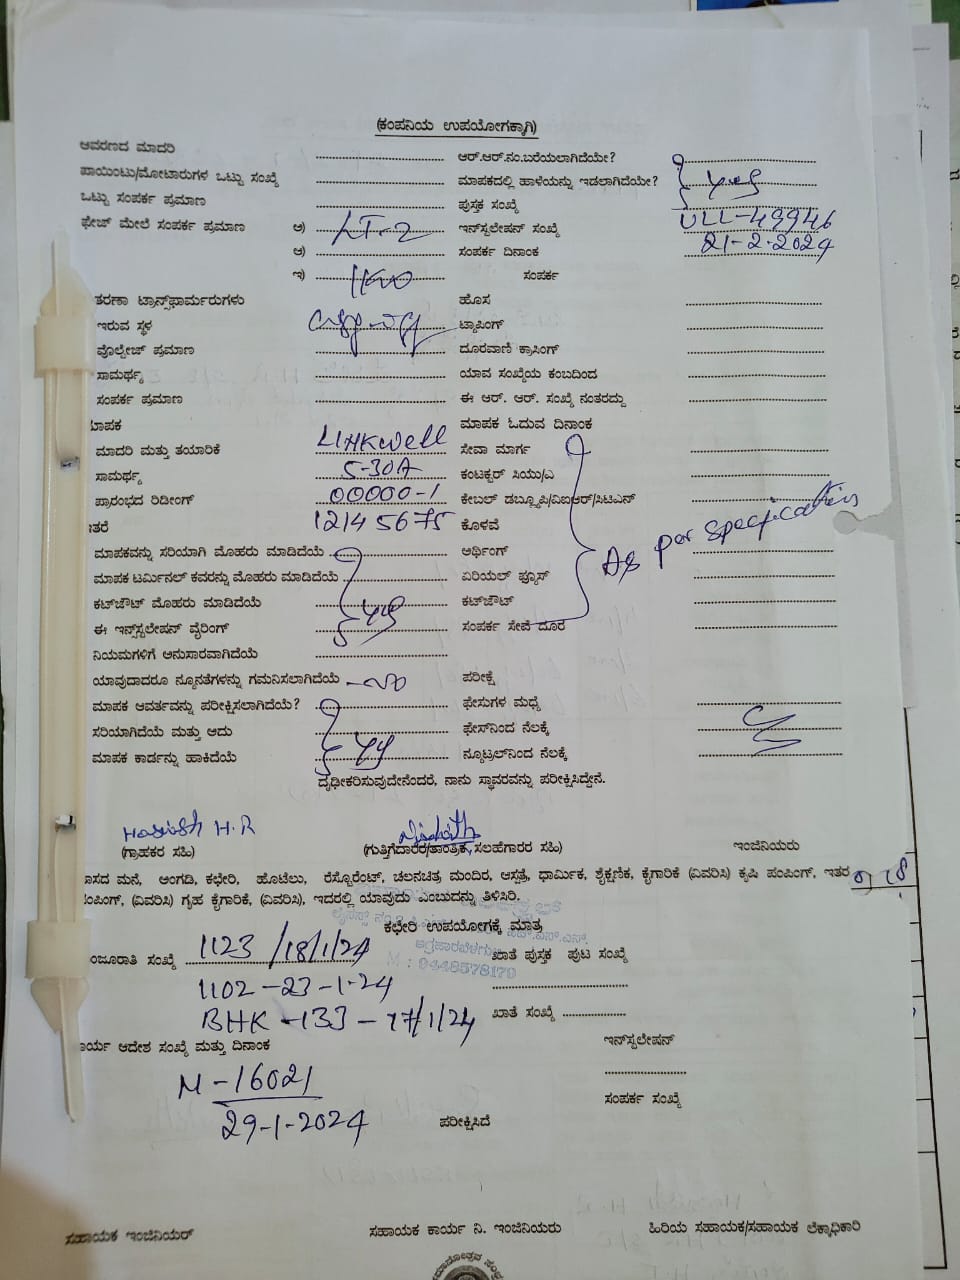 (ಕಂಪನಿಯ ಉಪಯೋಗಕ್ಕಾಗಿ)
ಆವರಣದ ಮಾದರಿ ಆರ್.ಆರ್.ನಂ.ಬರೆಯಲಾಗಿದೆಯೇ?
ಪಾಯಿಂಟು/ಮೋಟಾರುಗಳ ಒಟ್ಟು ಸಂಖ್ಯೆ ಮಾಪಕದಲ್ಲಿ ಹಾಳೆಯನ್ನು ಇಡಲಾಗಿದೆಯೇ? yes
ಒಟ್ಟು ಸಂಪರ್ಕ ಪ್ರಮಾಣ ಪುಸ್ತಕ ಸಂಖ್ಯೆ
ಫೇಜ್ ಮೇಲೆ ಸಂಪರ್ಕ ಪ್ರಮಾಣ ಅ) LT-2 ಇನ್‌ಸ್ಟಲೇಷನ್ ಸಂಖ್ಯೆ ULL-49946
ಆ) ಸಂಪರ್ಕ ದಿನಾಂಕ 21-2-2024
ಇ) 1KW ಸಂಪರ್ಕ
ತರಣಾ ಟ್ರಾನ್ಸ್‌ಫಾರ್ಮರುಗಳು ಹೊಸ
ಇರುವ ಸ್ಥಳ ಟ್ಯಾಪಿಂಗ್
ವೊಲ್ಟೇಜ್ ಪ್ರಮಾಣ ದೂರವಾಣಿ ಕ್ರಾಸಿಂಗ್
ಸಾಮರ್ಥ್ಯ ಯಾವ ಸಂಖ್ಯೆಯ ಕಂಬದಿಂದ
ಸಂಪರ್ಕ ಪ್ರಮಾಣ ಈ ಆರ್. ಆರ್. ಸಂಖ್ಯೆ ನಂತರದ್ದು
ಮಾಪಕ ಮಾಪಕ ಓದುವ ದಿನಾಂಕ
ಮಾದರಿ ಮತ್ತು ತಯಾರಿಕೆ LINKWell ಸೇವಾ ಮಾರ್ಗ
ಸಾಮರ್ಥ್ಯ 5-30A ಕಂಟಕ್ಟರ್ ಸಿಯು/ಎ
ಪ್ರಾರಂಭದ ರಿಡೀಂಗ್ 00000-1 ಕೇಬಲ್ ಡಬ್ಲ್ಯೂಪಿ/ವಿಐಆರ್/ಸಿಟಿಎನ್
ಇತರೆ 12145675 ಕೊಳವೆ
ಮಾಪಕವನ್ನು ಸರಿಯಾಗಿ ಮೊಹರು ಮಾಡಿದೆಯೆ ಅರ್ಥಿಂಗ್ As per specification
ಮಾಪಕ ಟರ್ಮಿನಲ್ ಕವರನ್ನು ಮೊಹರು ಮಾಡಿದೆಯೆ ಏರಿಯಲ್ ಫ್ಯೂಸ್
ಕಟ್‌ಔಟ್ ಮೊಹರು ಮಾಡಿದೆಯೆ yes ಕಟ್‌ಔಟ್
ಈ ಇನ್ಸ್‌ಸ್ಟಲೇಷನ್ ವೈರಿಂಗ್ ಸಂಪರ್ಕ ಸೇವೆ ದೂರ
ನಿಯಮಗಳಿಗೆ ಅನುಸಾರವಾಗಿದೆಯೆ
ಯಾವುದಾದರೂ ನ್ಯೂನತೆಗಳನ್ನು ಗಮನಿಸಲಾಗಿದೆಯೆ -no ಪರೀಕ್ಷೆ
ಮಾಪಕ ಆವರ್ತವನ್ನು ಪರೀಕ್ಷಿಸಲಾಗಿದೆಯೆ? ಫೇಸುಗಳ ಮಧ್ಯೆ
ಸರಿಯಾಗಿದೆಯೆ ಮತ್ತು ಅದು ಫೇಸ್‌ನಿಂದ ನೆಲಕ್ಕೆ
ಮಾಪಕ ಕಾರ್ಡನ್ನು ಹಾಕಿದೆಯೆ yes ನ್ಯೂಟ್ರಲ್‌ನಿಂದ ನೆಲಕ್ಕೆ
ದೃಢೀಕರಿಸುವುದೇನೆಂದರೆ, ನಾನು ಸ್ಥಾವರವನ್ನು ಪರೀಕ್ಷಿಸಿದ್ದೇನೆ.
Harish H.R
(ಗ್ರಾಹಕರ ಸಹಿ) (ಗುತ್ತಿಗೆದಾರರ/ತಾಂತ್ರಿಕ, ಸಲಹೆಗಾರರ ಸಹಿ) ಇಂಜಿನಿಯರು
ವಾಸದ ಮನೆ, ಅಂಗಡಿ, ಕಛೇರಿ, ಹೊಟೆಲು, ರೆಸ್ಟೊರೆಂಟ್, ಚಲನಚಿತ್ರ ಮಂದಿರ, ಆಸ್ಪತ್ರೆ, ಧಾರ್ಮಿಕ, ಶೈಕ್ಷಣಿಕ, ಕೈಗಾರಿಕೆ (ವಿವರಿಸಿ) ಕೃಷಿ ಪಂಪಿಂಗ್, ಇತರ
ಪಂಪಿಂಗ್, (ವಿವರಿಸಿ) ಗೃಹ ಕೈಗಾರಿಕೆ, (ವಿವರಿಸಿ), ಇದರಲ್ಲಿ ಯಾವುದು ಎಂಬುದನ್ನು ತಿಳಿಸಿರಿ.
ಕಛೇರಿ ಉಪಯೋಗಕ್ಕೆ ಮಾತ್ರ
ಮಂಜೂರಾತಿ ಸಂಖ್ಯೆ 1123 /18/1/24 ಖಾತೆ ಪುಸ್ತಕ ಪುಟ ಸಂಖ್ಯೆ
M : 9448578179
1102 -23-1-24
BHK -133 - 17/1/24 ಖಾತೆ ಸಂಖ್ಯೆ
ಕಾರ್ಯ ಆದೇಶ ಸಂಖ್ಯೆ ಮತ್ತು ದಿನಾಂಕ ಇನ್‌ಸ್ಟಲೇಷನ್
M -16021
29-1-2024 ಸಂಪರ್ಕ ಸಂಖ್ಯೆ
ಪರೀಕ್ಷಿಸಿದೆ
ಸಹಾಯಕ ಇಂಜಿನಿಯರ್ ಸಹಾಯಕ ಕಾರ್ಯ ನಿ. ಇಂಜಿನಿಯರು ಹಿರಿಯ ಸಹಾಯಕ/ಸಹಾಯಕ ಲೆಕ್ಕಾಧಿಕಾರಿ